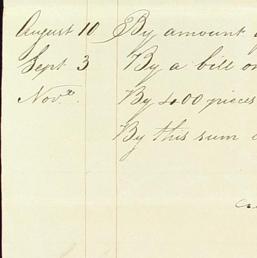 August 10 By amount
Sept 3 By a bill on
Nov.r By 400 pieces
By this sum